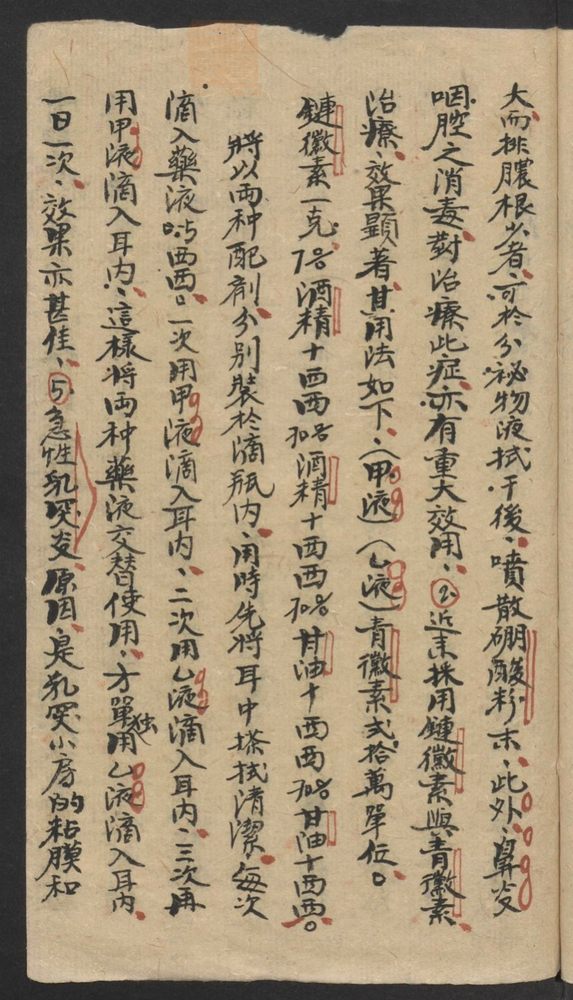 大、而排膿根少者、可於分祕物液拭干後、噴散硼酸粉末、此外、鼻炎
咽腔之消毒、對治療此症、亦有重大效用、②近來採用鏈黴素與青黴素
治療、效果顯著、其用法如下、(甲液)(乙液)青黴素弍拾萬單位。
鏈黴素一克、70%酒精十西西70%酒精十西西70%甘油十西西70%甘油十西西。
將以兩种配剤分别裝於滴瓶内、用時先將耳中搽拭清潔、每次
滴入藥液0.5西西。一次用甲液滴入耳内、二次用乙液滴入耳内、三次再
用甲液滴入耳内、這樣將両种藥液交替使用、方單独用乙液滴入耳内、
一日一次、效果亦甚佳、⑤急性乳突炎、原因、是乳突小房的粘膜和